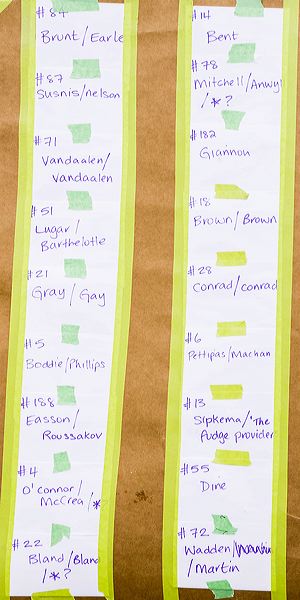 #84
Brunt/Earle
#87
Susnis/nelson
#71
Vandaalen/
Vandaalen
#51
Lugar/
Barthelotte
#21
Gray/Gay
#5
Boddie/Phillips
#188
Easson/
Roussakov
#4
O'connor/
McCrea/*
#22
Bland/Bland
/*?
#14
Bent
#78
Mitchell/Anwyl
/*?
#182
Giannou
#18
Brown/Brown
#28
Conrad/conrad
#6
Pettipas/Machan
#13
Sipkema/"The
fudge provider
#55
Dine
#72
Wadden/
/Martin